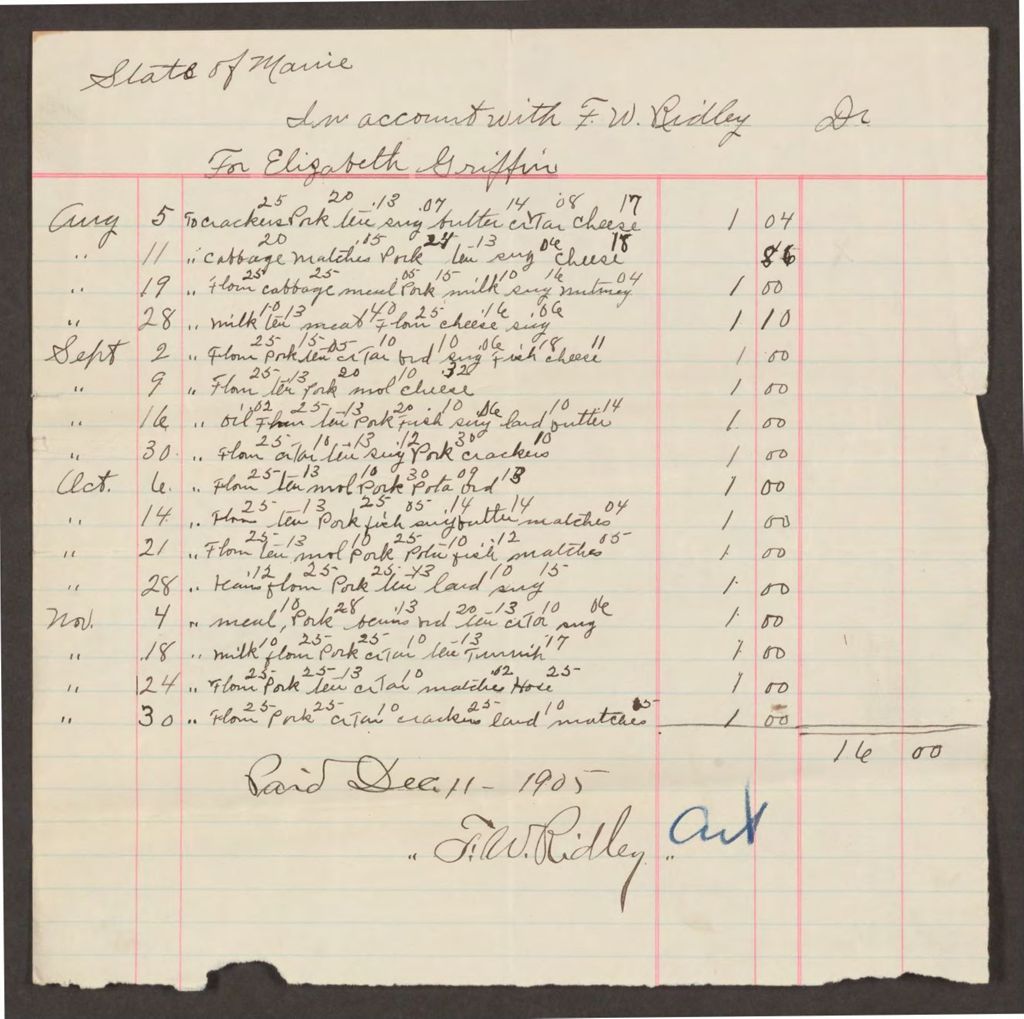 State of Maine
In account with F. W. Ridley Dr
For Elizabeth Griffin
25 20 .13 .07 14 08 17
Aug 5 To crackers Pork tea sug butter crTar cheese 1 04
20 .15 24 13 06 18
" 11 " cabbage matches Pork tea sug cheese 86
25 25 05 15 10 16 04
" 19 " Flour cabbage meal Pork milk sug nutmeg 1 00
10 13 40 25 16 06
" 28 " milk tea meat Flour cheese sug 1 10
25 15 05 10 10 06 18 11
Sept 2 " Flour Pork tea crTar brd sug Fish cheese 1 00
25 13 20 10 32
" 9 " Flour tea Pork mol cheese 1 00
.02 25 13 20 10 06 10 14
" 16 " oil Flour tea Pork Fish sug lard butter 1 00
25 10 13 .12 30 10
" 30 " Flour crTar tea sug Pork crackers 1 00
25 13 10 30 09 13
Oct. 6 " Flour tea mol Pork Pota brd 1 00
25 13 25 05 .14 14 04
" 14 " Flour tea Pork fish sug butter matches 1 00
25 13 10 25 10 .12 05
" 21 " Flour tea mol Pork Pota fish matches 1 00
.12 25 25 13 10 15
" 28 " beans flour Pork tea lard sug 1 00
10 28 .13 20 13 10 06
Nov. 4 " meal, Pork beans brd tea crTar sug 1 00
10 25 25 10 13 17
" 18 " milk flour Pork crTar tea Turnnih 1 00
25 25 13 10 .02 25
" 24 " Flour Pork tea crTar matches Hose 1 00
25 25 10 25 10 05
" 30 " Flour Pork crTar crackers lard matches 1 00
16 00
Paid Dec. 11 - 1905
" F. W. Ridley "